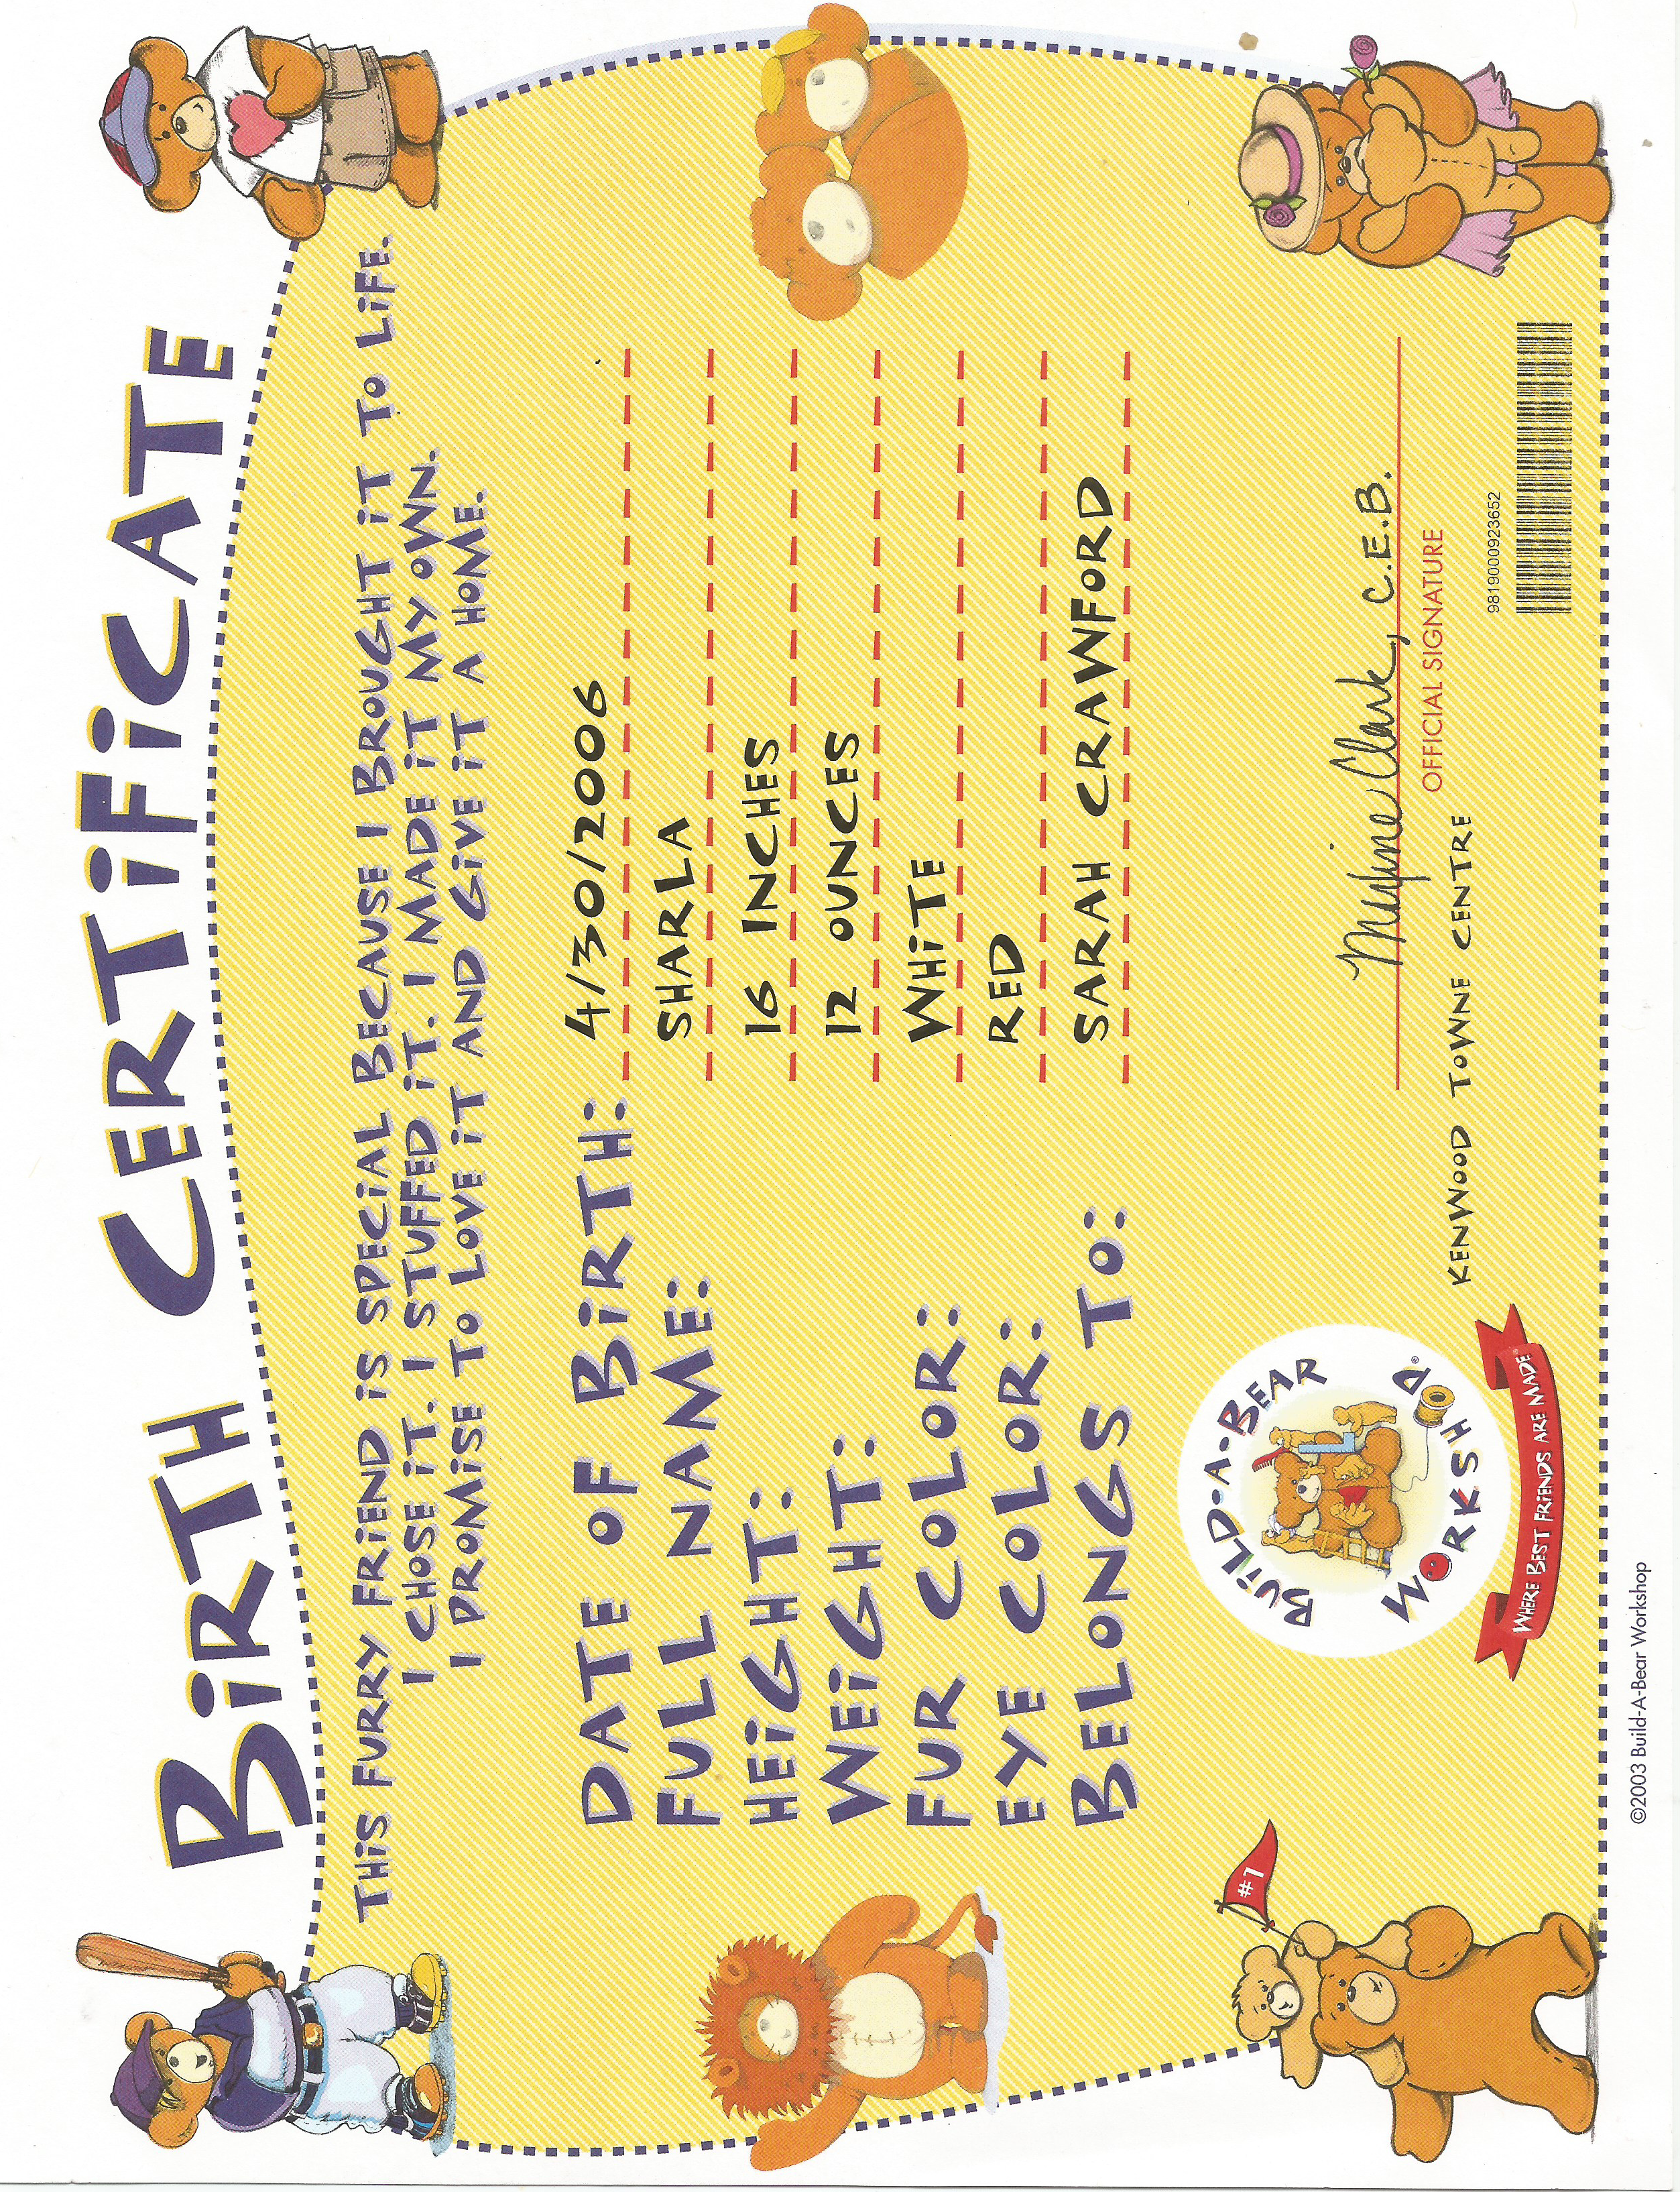 BiRTH CERTiFiCATE
THiS FURRY FRiEND iS SPECiAL BECAUSE I BROUGHT iT To LiFE.
I CHOSE iT. I STUFFED iT. I MADE iT MY OWN.
I PROMiSE To LOVE iT AND GiVE iT A HOME.
DATE OF BiRTH: 4/30/2006
FULL NAME: SHARLA
HEiGHT: 16 INCHES
WEiGHT: 12 OUNCES
FUR COLOR: WHiTE
EYE COLOR: RED
BELONGS To: SARAH CRAWFORD
#1
BUiLD-A-BEAR
WORKSHOP®
WHERE BEST FRiENDS ARE MADE
Maxine Clark, C.E.B.
OFFICIAL SIGNATURE
KENWOOD TOWNE CENTRE
9819000923652
©2003 Build-A-Bear Workshop